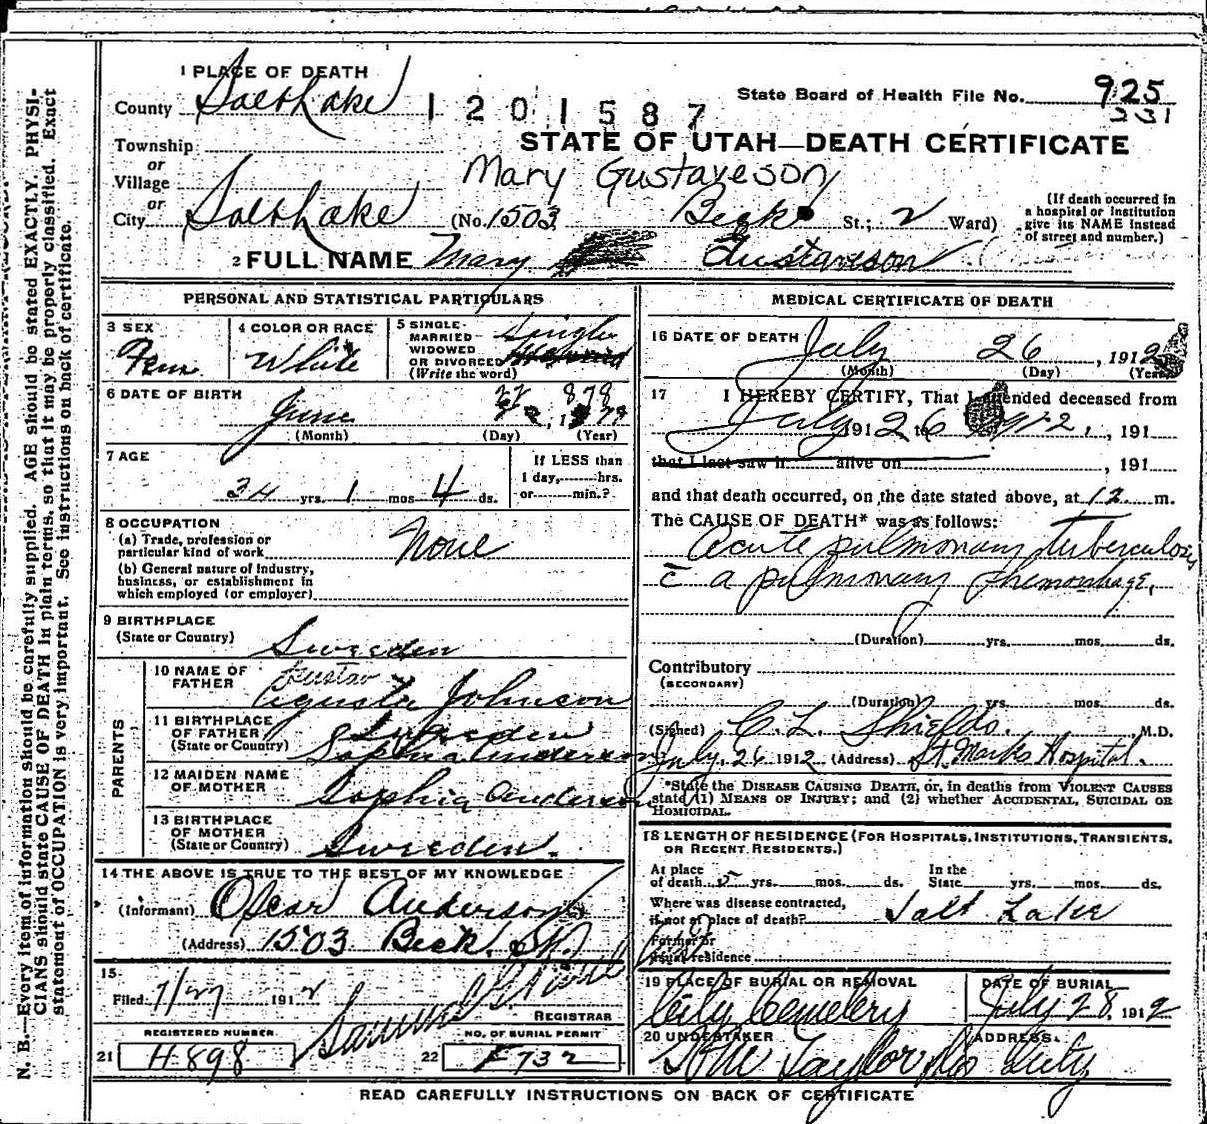 1 PLACE OF DEATH
County Salt Lake
1201587
State Board of Health File No. 925
STATE OF UTAH—DEATH CERTIFICATE
Township
or
Village
or
Mary Gustaveson
City Salt Lake (No. 1503 Beck St.; 2 Ward)
(If death occurred in a hospital or institution give its NAME instead of street and number.)
2 FULL NAME Mary Gustaveson
PERSONAL AND STATISTICAL PARTICULARS
3 SEX Fem
4 COLOR OR RACE White
5 SINGLE- MARRIED- WIDOWED OR DIVORCED (Write the word) Single
6 DATE OF BIRTH
22 878
June
(Month) (Day) (Year)
7 AGE
34 yrs. 1 mos 4 ds.
If LESS than 1 day, hrs. or min.?
8 OCCUPATION
(a) Trade, profession or particular kind of work None
(b) General nature of industry, business, or establishment in which employed (or employer)
9 BIRTHPLACE
(State or Country) Sweden
PARENTS
10 NAME OF FATHER Gustav
Johnson
11 BIRTHPLACE OF FATHER (State or Country) Sweden
Sophia Anderson
12 MAIDEN NAME OF MOTHER Sophia Anderson
13 BIRTHPLACE OF MOTHER (State or Country) Sweden.
14 THE ABOVE IS TRUE TO THE BEST OF MY KNOWLEDGE
(Informant) Oscar Anderson
(Address) 1503 Beck St.
15
Filed 7/27 1912
REGISTRAR
REGISTERED NUMBER NO. OF BURIAL PERMIT
21 H 898 22 E 732
MEDICAL CERTIFICATE OF DEATH
16 DATE OF DEATH July 26, 1912
(Month) (Day) (Year)
17 I HEREBY CERTIFY, That I attended deceased from
July 26 1912, 191
that I last saw h alive on , 191
and that death occurred, on the date stated above, at 12 m.
The CAUSE OF DEATH* was as follows:
Acute pulmonary tuberculosis
c̄ a pulmonary hemorrhage,
(Duration) yrs. mos. ds.
Contributory
(SECONDARY)
(Duration) yrs. mos. ds.
(Signed) C. L. Shields, M.D.
July 26 1912 (Address) St. Marks Hospital.
*State the DISEASE CAUSING DEATH, or, in deaths from VIOLENT CAUSES
state (1) MEANS OF INJURY; and (2) whether ACCIDENTAL, SUICIDAL OR
HOMICIDAL.
18 LENGTH OF RESIDENCE (FOR HOSPITALS, INSTITUTIONS, TRANSIENTS,
OR RECENT RESIDENTS.)
At place of death yrs. mos. ds. In the State yrs. mos. ds.
Where was disease contracted, if not at place of death? Salt Lake
City
Former or usual residence
19 PLACE OF BURIAL OR REMOVAL DATE OF BURIAL
City Cemetery July 28 1912
20 UNDERTAKER ADDRESS
Taylor Co City
READ CAREFULLY INSTRUCTIONS ON BACK OF CERTIFICATE
N. B.—Every item of information should be carefully supplied. AGE should be stated EXACTLY. PHYSI-
CIANS should state CAUSE OF DEATH in plain terms, so that it may be properly classified. Exact
statement of OCCUPATION is very important. See instructions on back of certificate.